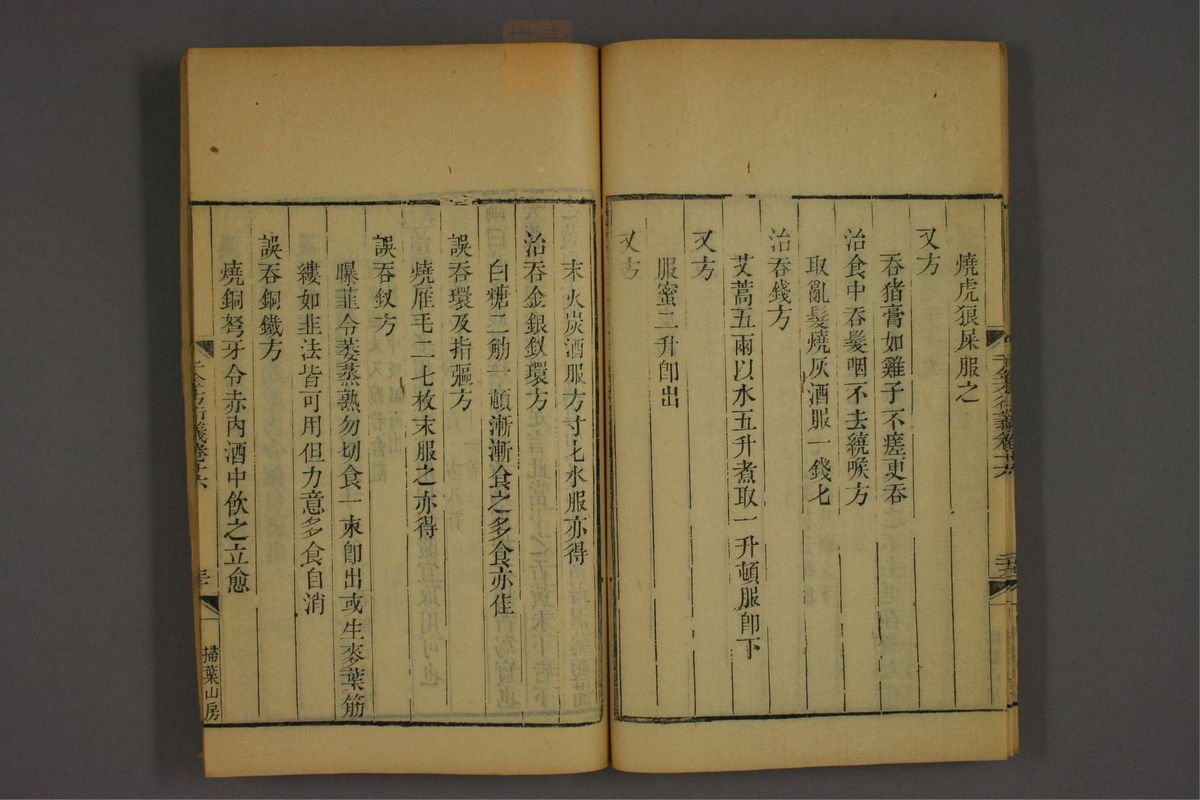 燒虎狼屎服之
又方
吞猪膏如雞子不瘥更吞
治食中吞髮咽不去繞喉方
取亂髮燒灰酒服一錢匕
治吞錢方
艾蒿五兩以水五升煮取一升頓服卽下
又方
服蜜二升卽出
又方
末火炭酒服方寸匕水服亦得
治吞金銀釵環方
白糖二觔一頓漸漸食之多食亦佳
誤吞環及指彄方
燒雁毛二七枚末服之亦得
誤吞釵方
曝韮令萎蒸熟勿切食一束卽出或生麥葉筋
縷如韭法皆可用但力意多食自消
誤吞銅鐵方
燒銅弩牙令赤內酒中飮之立愈
千金方衍義卷十六
三十
掃葉山房